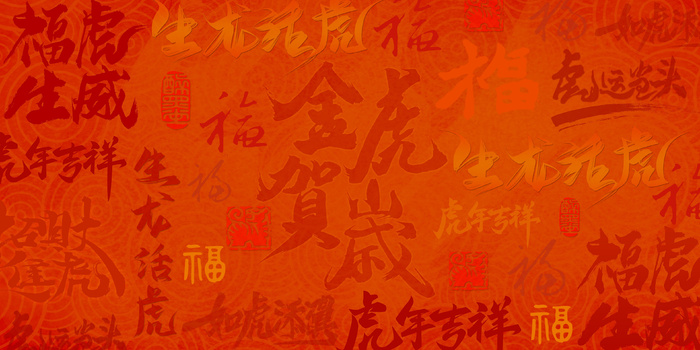 福虎
生威
生龙活虎
福
福
虎运当头
金虎
賀歲
福
虎年吉祥
生龙活虎
生龙活虎
福
虎年吉祥
招财
進虎
福
福
福虎
生威
如虎添翼
虎年吉祥
福
虎运当头